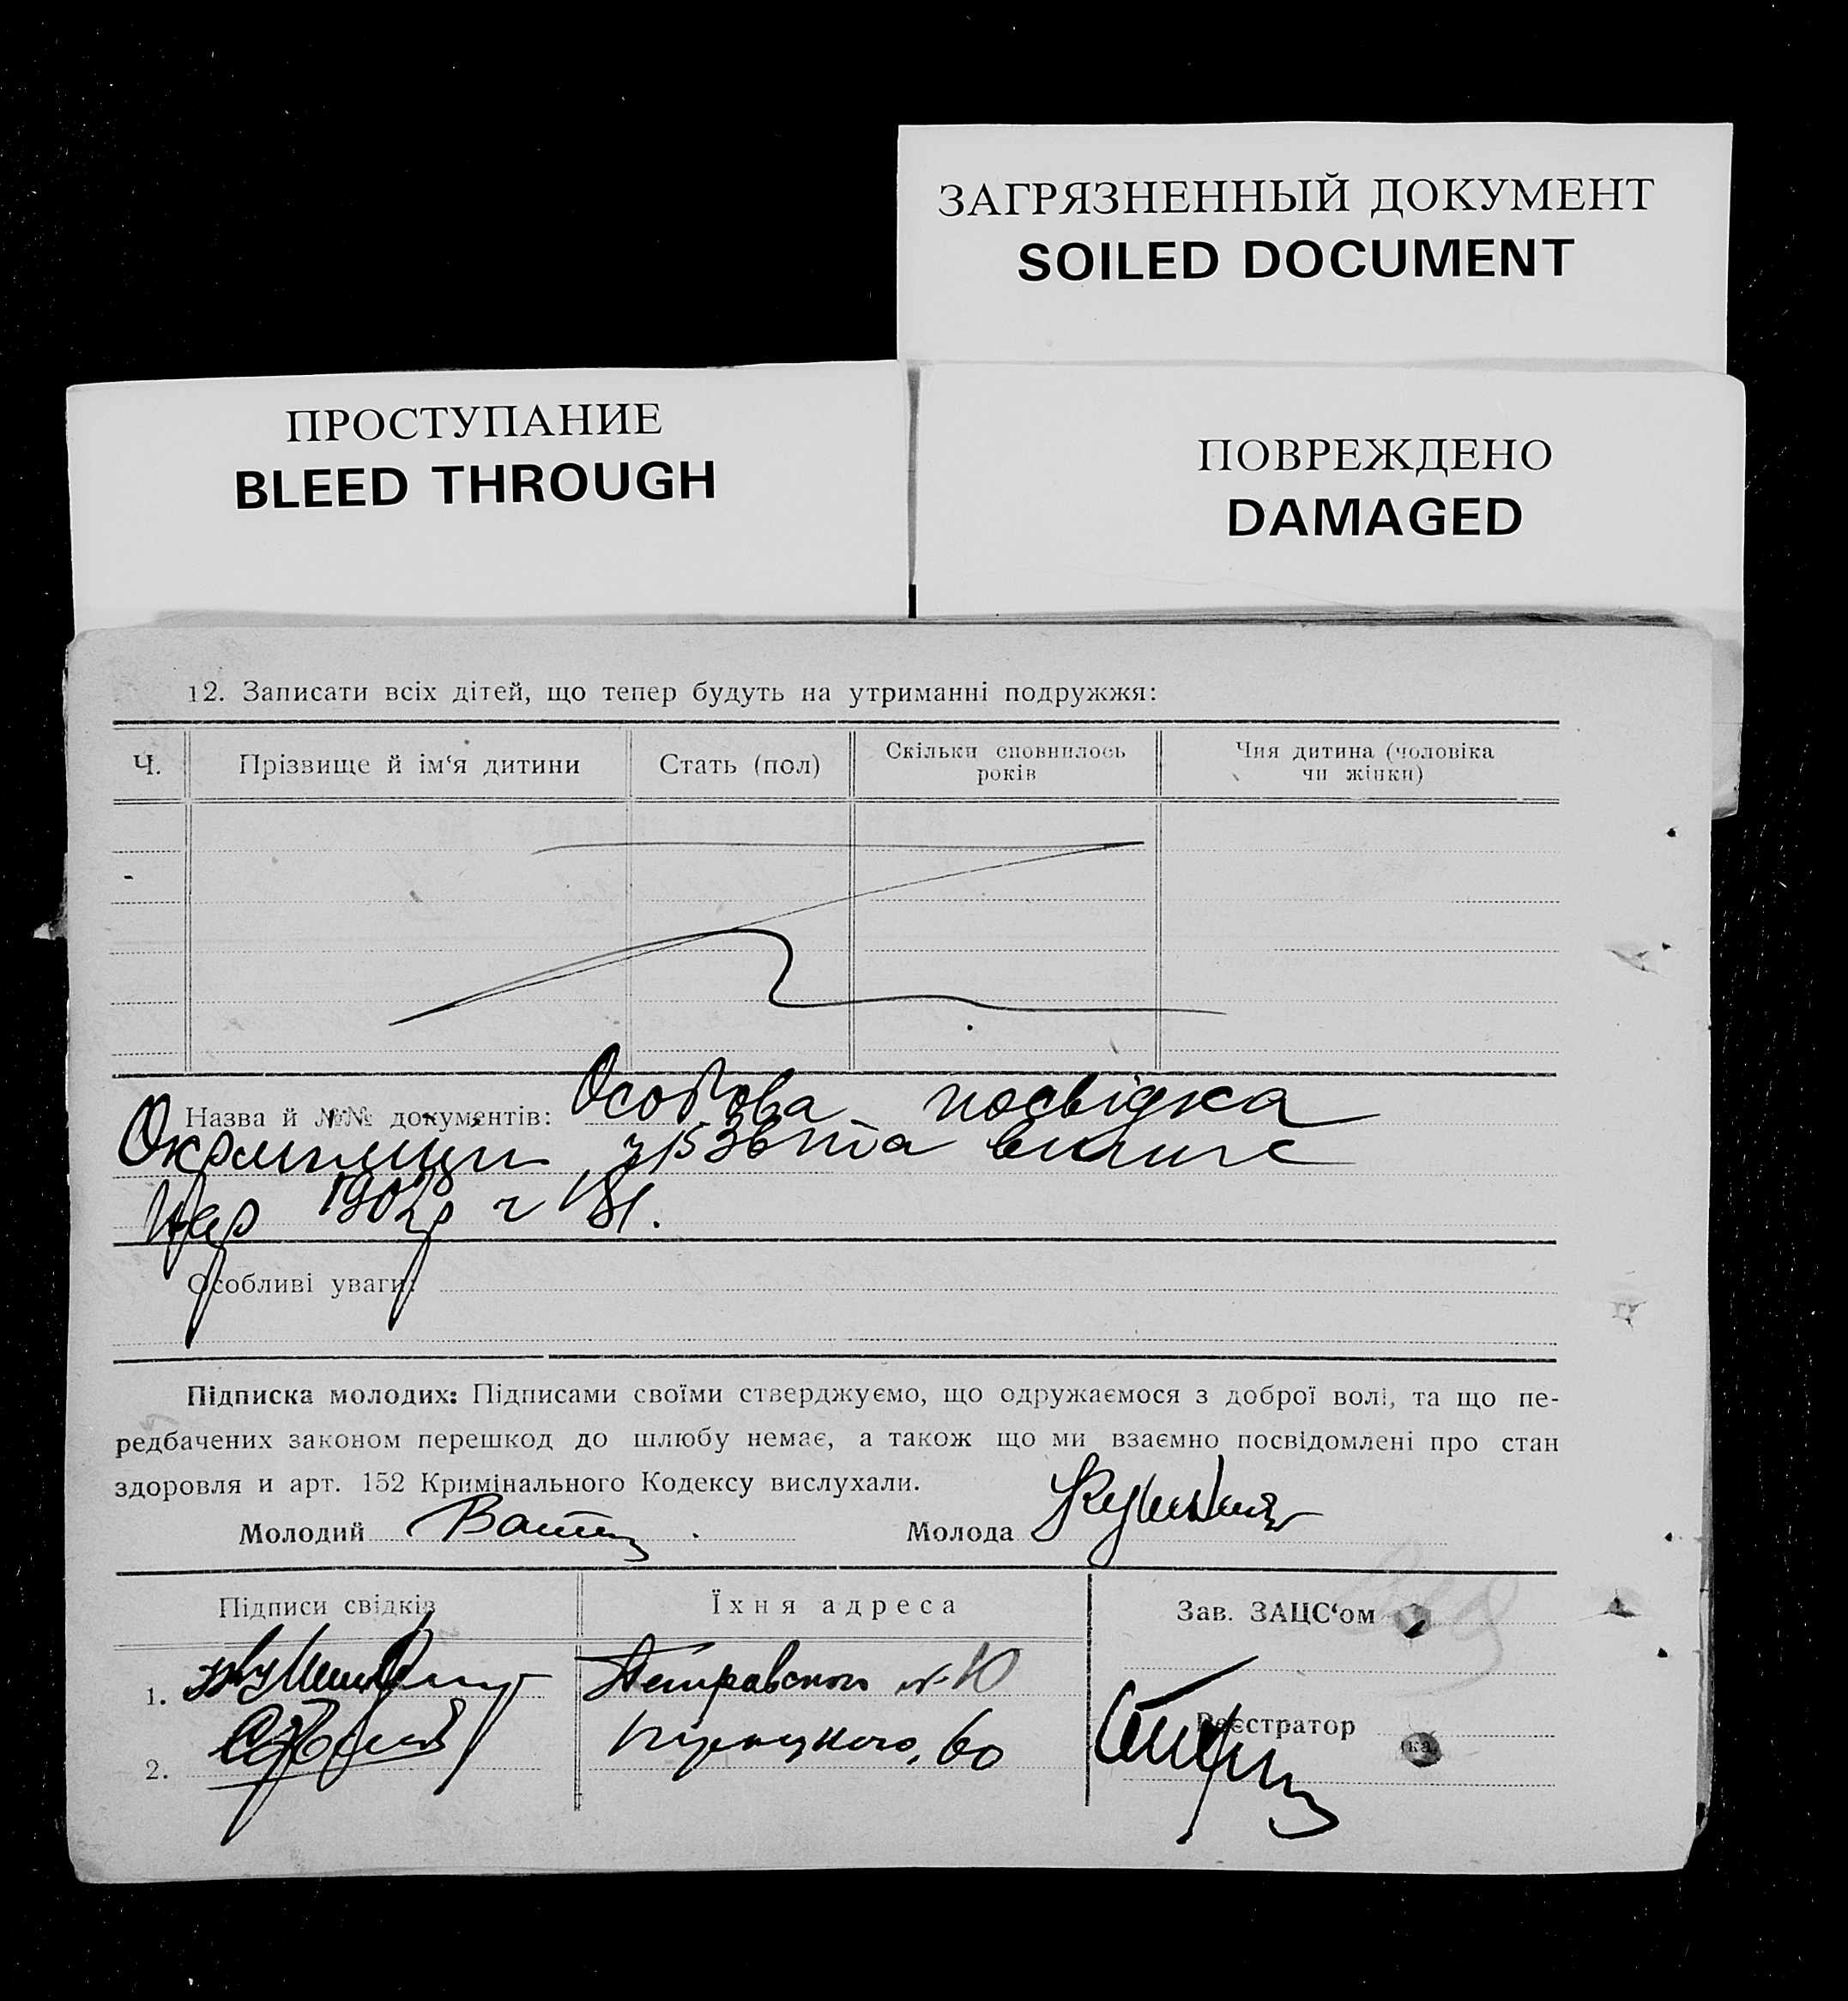 ЗАГРЯЗНЕННЫЙ ДОКУМЕНТ
SOILED DOCUMENT
ПРОСТУПАНИЕ
BLEED THROUGH
ПОВРЕЖДЕНО
DAMAGED
12. Записати всіх дітей, що тепер будуть на утриманні подружжя:
Ч. Прізвище й ім‘я дитини Стать (пол) Скільки сповнилось років Чия дитина (чоловіка чи жінки)
Назва й №№ документів: Особова посвідка
та
1902р
Особливі уваги:
Підписка молодих: Підписами своїми стверджуємо, що одружаємося з доброї волі, та що пе-
редбачених законом перешкод до шлюбу немає, а також що ми взаємно посвідомлені про стан
здоровля и арт. 152 Кримінального Кодексу вислухали.
Молодий Молода
Підписи свідків Їхня адреса Зав. ЗАЦС‘ом
1. Петровского № 10
Реєстратор
2. 60